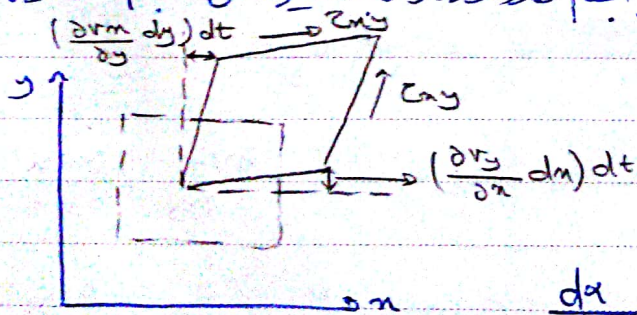 (∂vx/∂y dy) dt → τxy
y
τxy
(∂vy/∂x dx) dt
x
dα